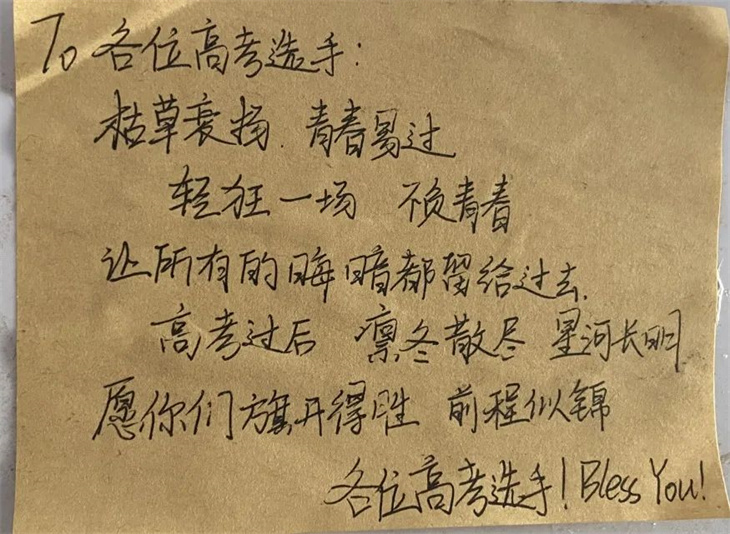 To 各位高考选手:
枯草衰杨. 青春易过
轻狂一场 不负青春
让所有的晦暗都留给过去.
高考过后 凛冬散尽 星河长明
愿你们旗开得胜 前程似锦
各位高考选手! Bless You!